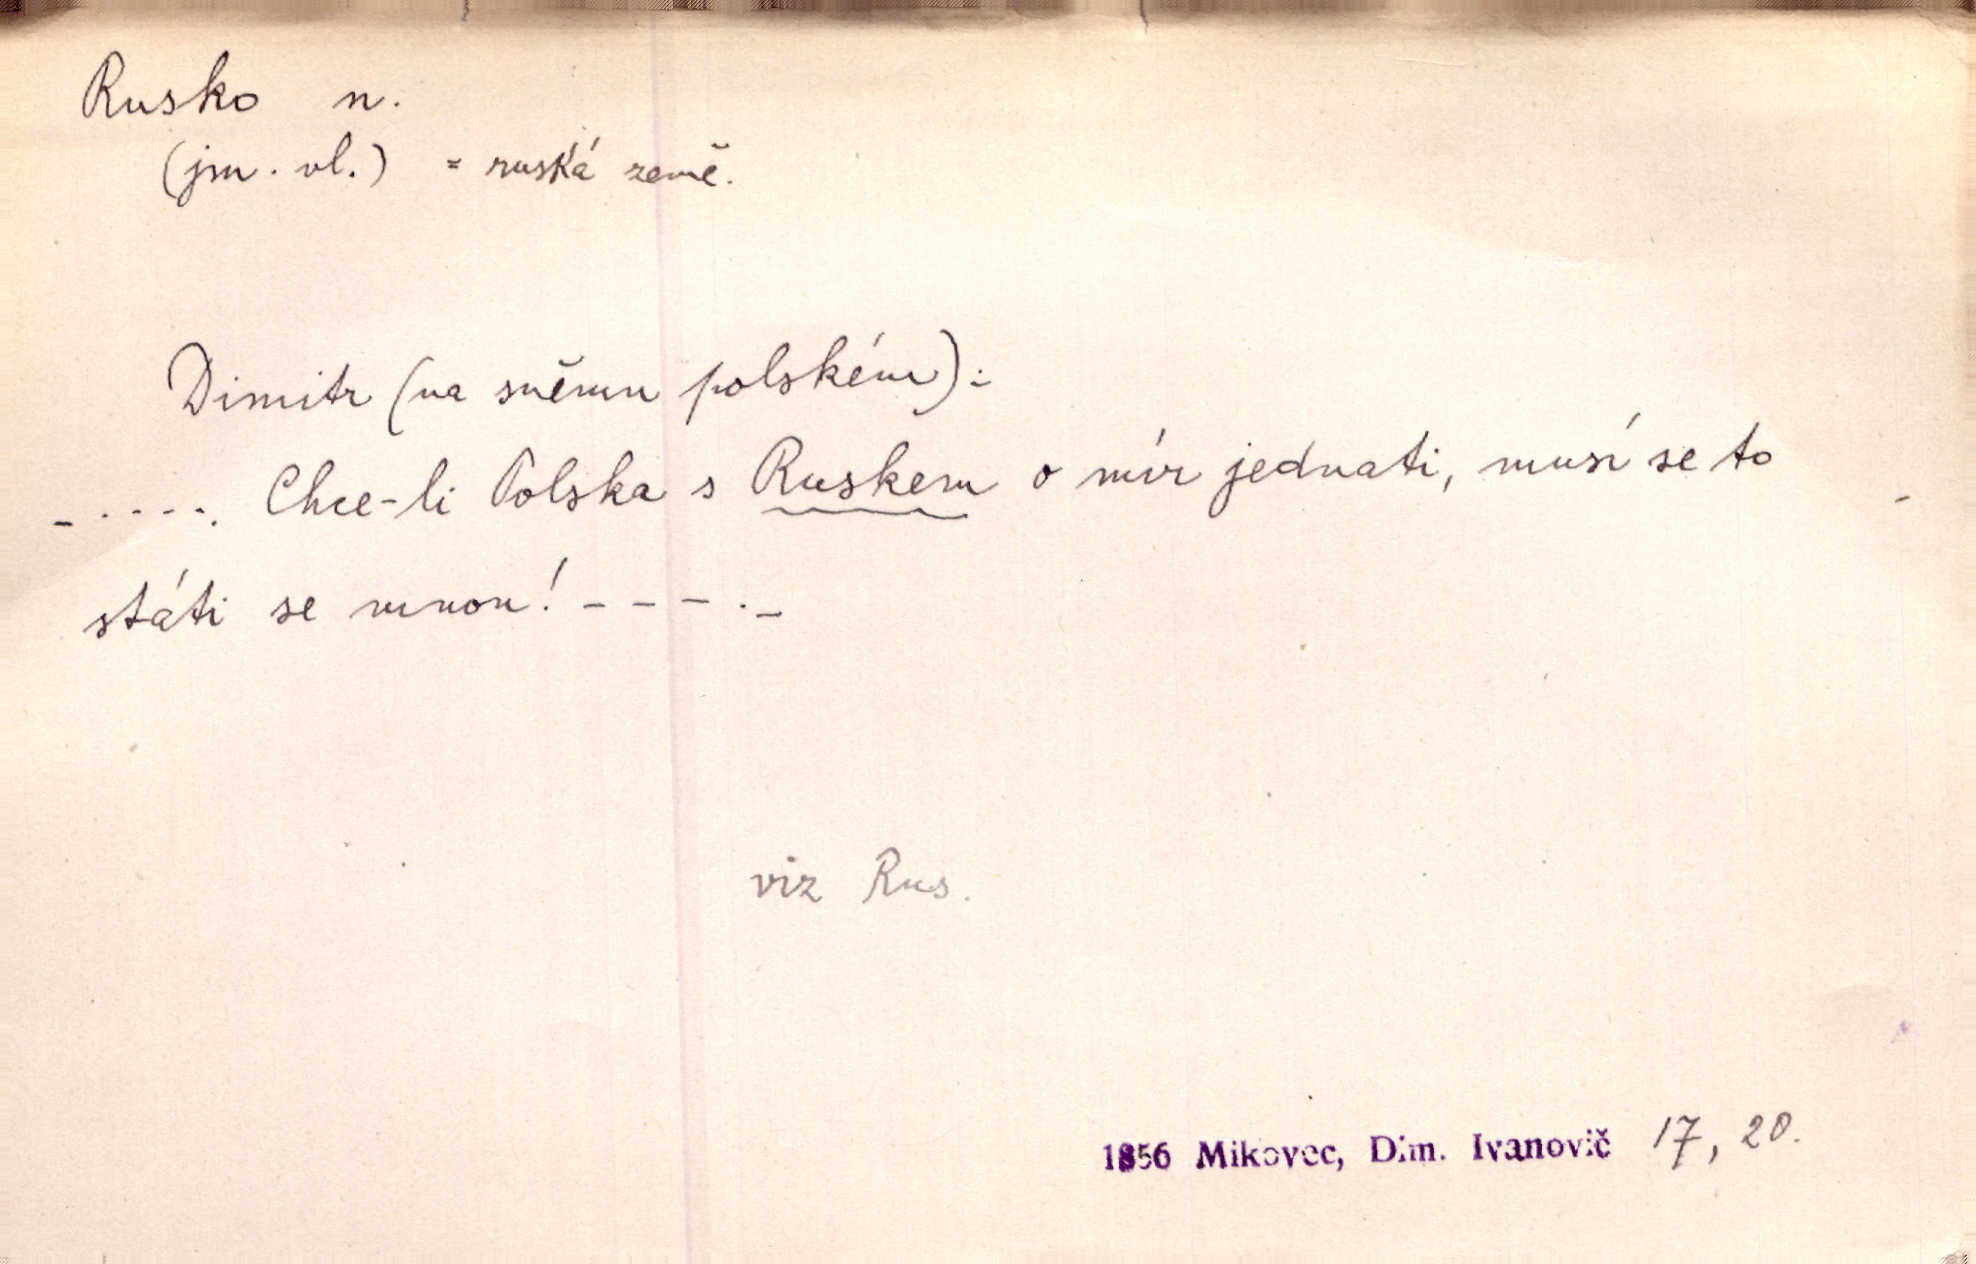 Rusko n.
(jm. vl.) = ruská země.
Dimitr (na sněmu polském):
- . - - - . Chce-li Polska s Ruskem o mír jednati, musí se to
státi se mnou! - - - . -
viz Rus.
1856 Mikovec, Dim. Ivanovič 17, 20.